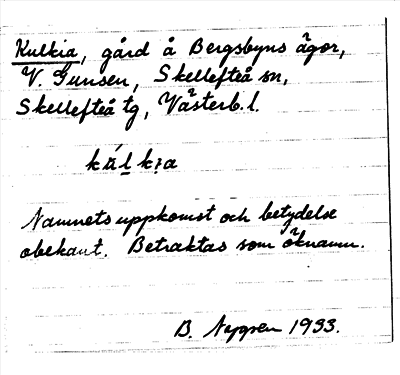 Kulkia, gård å Bergsbyns ägor,
V. Gunsen, Skellefteå sn,
Skellefteå tg, Västerb. l.
Namnets uppkomst och betydelse
obekant. Betraktas som öknamn.
B. Nygren 1933.